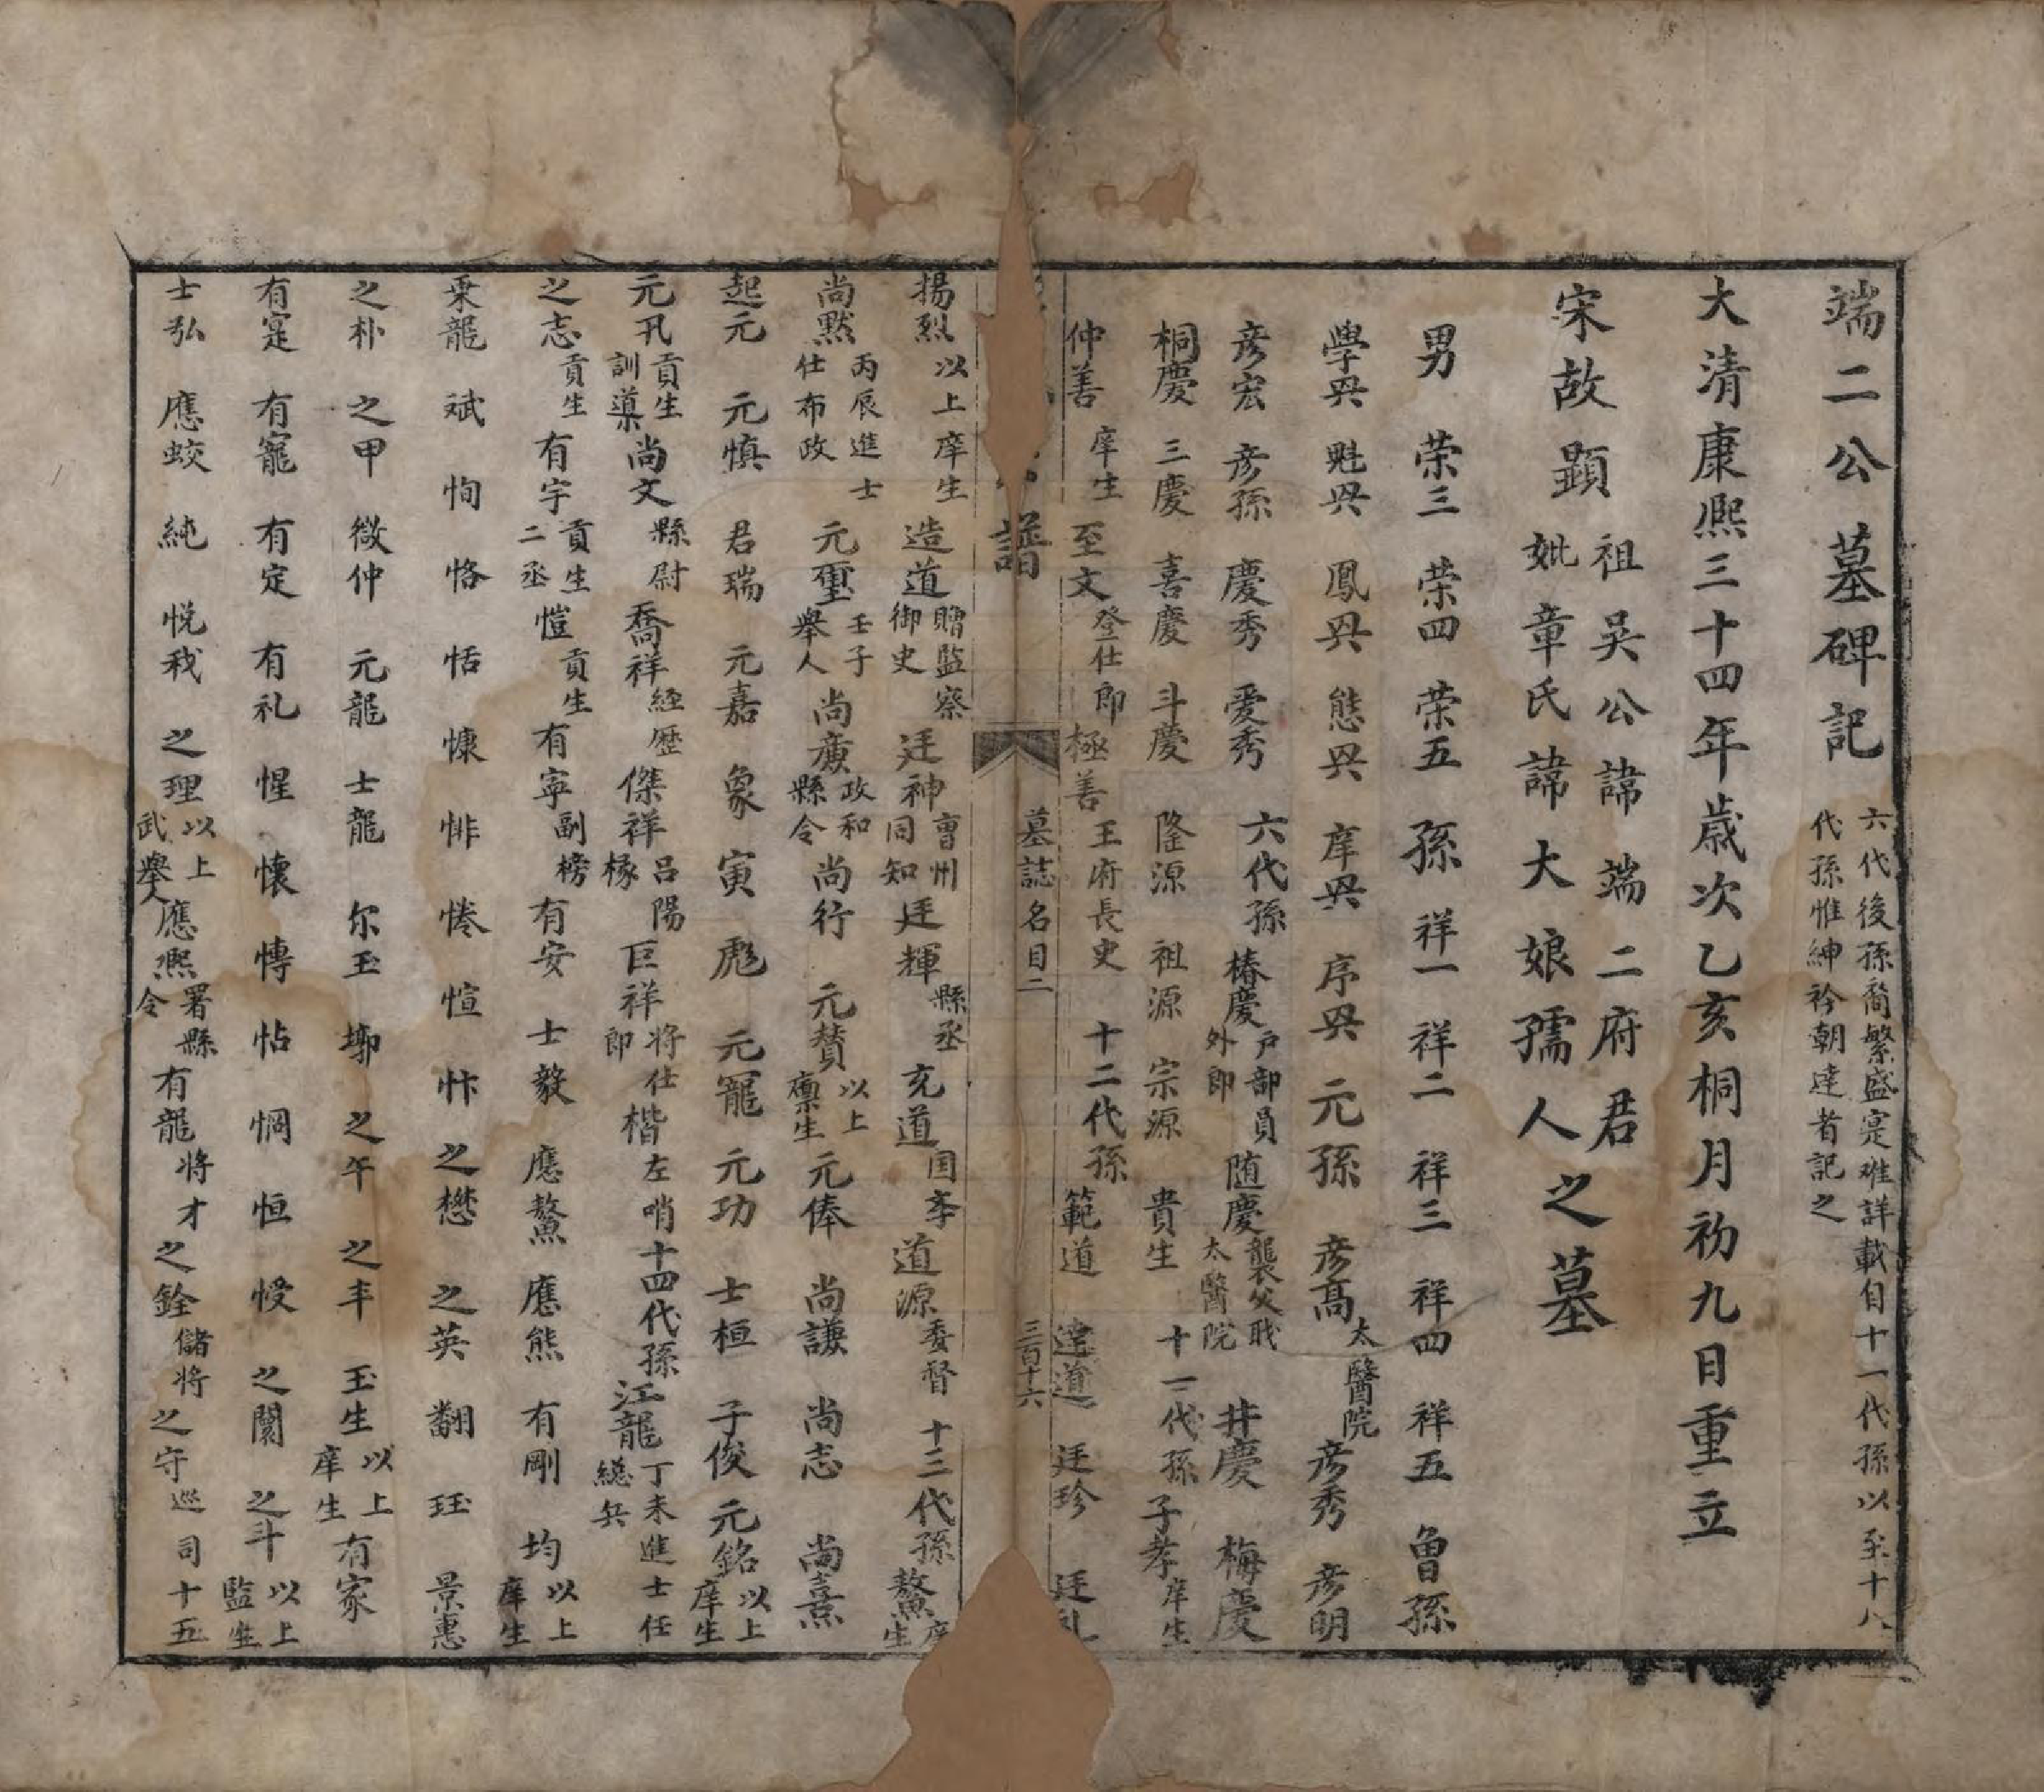 端二公墓碑記 六代後孫裔繁盛寔难詳載自十一代孫以至十八代孫惟紳衿朝達者記之
大清康熙三十四年歳次乙亥桐月初九日重立
宋故顕祖吴公諱端二府君妣章氏諱大娘孺人之墓
男 荣三 荣四 荣五 孫 祥一 祥二 祥三 祥四 祥五 曾孫
學㒷 魁㒷 鳳㒷 態㒷 庠㒷 序㒷 元孫 彦髙 太醫院 彦秀 彦明
彦宏 彦孫 慶秀 爱秀 六代孫 椿慶 户部員外郎 随慶 襲父戝太醫院 井慶 梅慶
桐慶 三慶 喜慶 斗慶 隆源 祖源 宗源 貴生 十一代孫 子孝 庠生
仲善 庠生 至文 登仕郎 極善 王府長史 十二代孫 範道 達道 廷珍 廷礼
譜 墓誌名目二 三百十六
揚烈 以上庠生 造道 贈監察御史 廷神 曺州同知 廷輝 縣丞 充道 国李 道源 委督 十三代孫 鰲 庠生
尚黙 丙辰進士仕布政 元璽 壬子舉人 尚廣 政和縣令 尚行 元賛 以上廪生 元俸 尚謙 尚志 尚熹
起元 元慎 君瑞 元嘉 象寅 彪 元寵 元功 士桓 子俊 元銘 以上庠生
元孔 貢生訓導 尚文 縣尉 喬祥 経歴 傑祥 吕陽椽 巨祥 将仕郎 楷 左哨 十四代孫 江龍 丁未進士任縂兵
之志 貢生 有宇 貢生二丞 愷 貢生 有寧 副榜 有安 士毅 應鰲 應熊 有剛 均 以上庠生
乗龍 斌 恂 恪 恬 慷 悱 惓 愃 忭 之懋 之英 翻 珏 景惠
之朴 之甲 徴仲 元龍 士龍 尔玉 墎 之午 之丰 玉生 以上庠生 有家
有寔 有寵 有定 有礼 惺 懐 慱 怗 惘 恒 慢 之闑 之斗 以上監生
士弘 應蛟 純 悦我 之理 以上武舉人 應熙 署縣令 有龍 将才 之銓 儲将 之守 巡司 十五